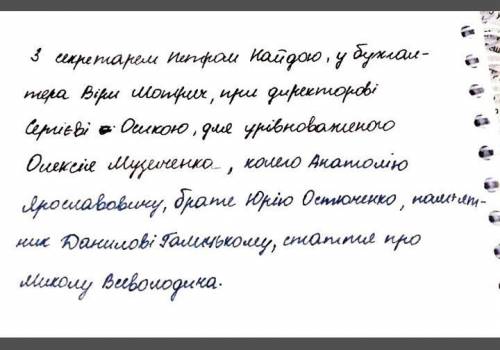 З секретарем Петром Найдою, у бухгал-
тера Віри Мотрих, при директорові
Сергієві Осикою, для урівноваженого
Олексія Музиченка, колего Анатолію
Ярославовичу, брате Юрію Остюченко, пам'ят-
ник Данилові Галицькому, стаття про
Миколу Всеволодина.